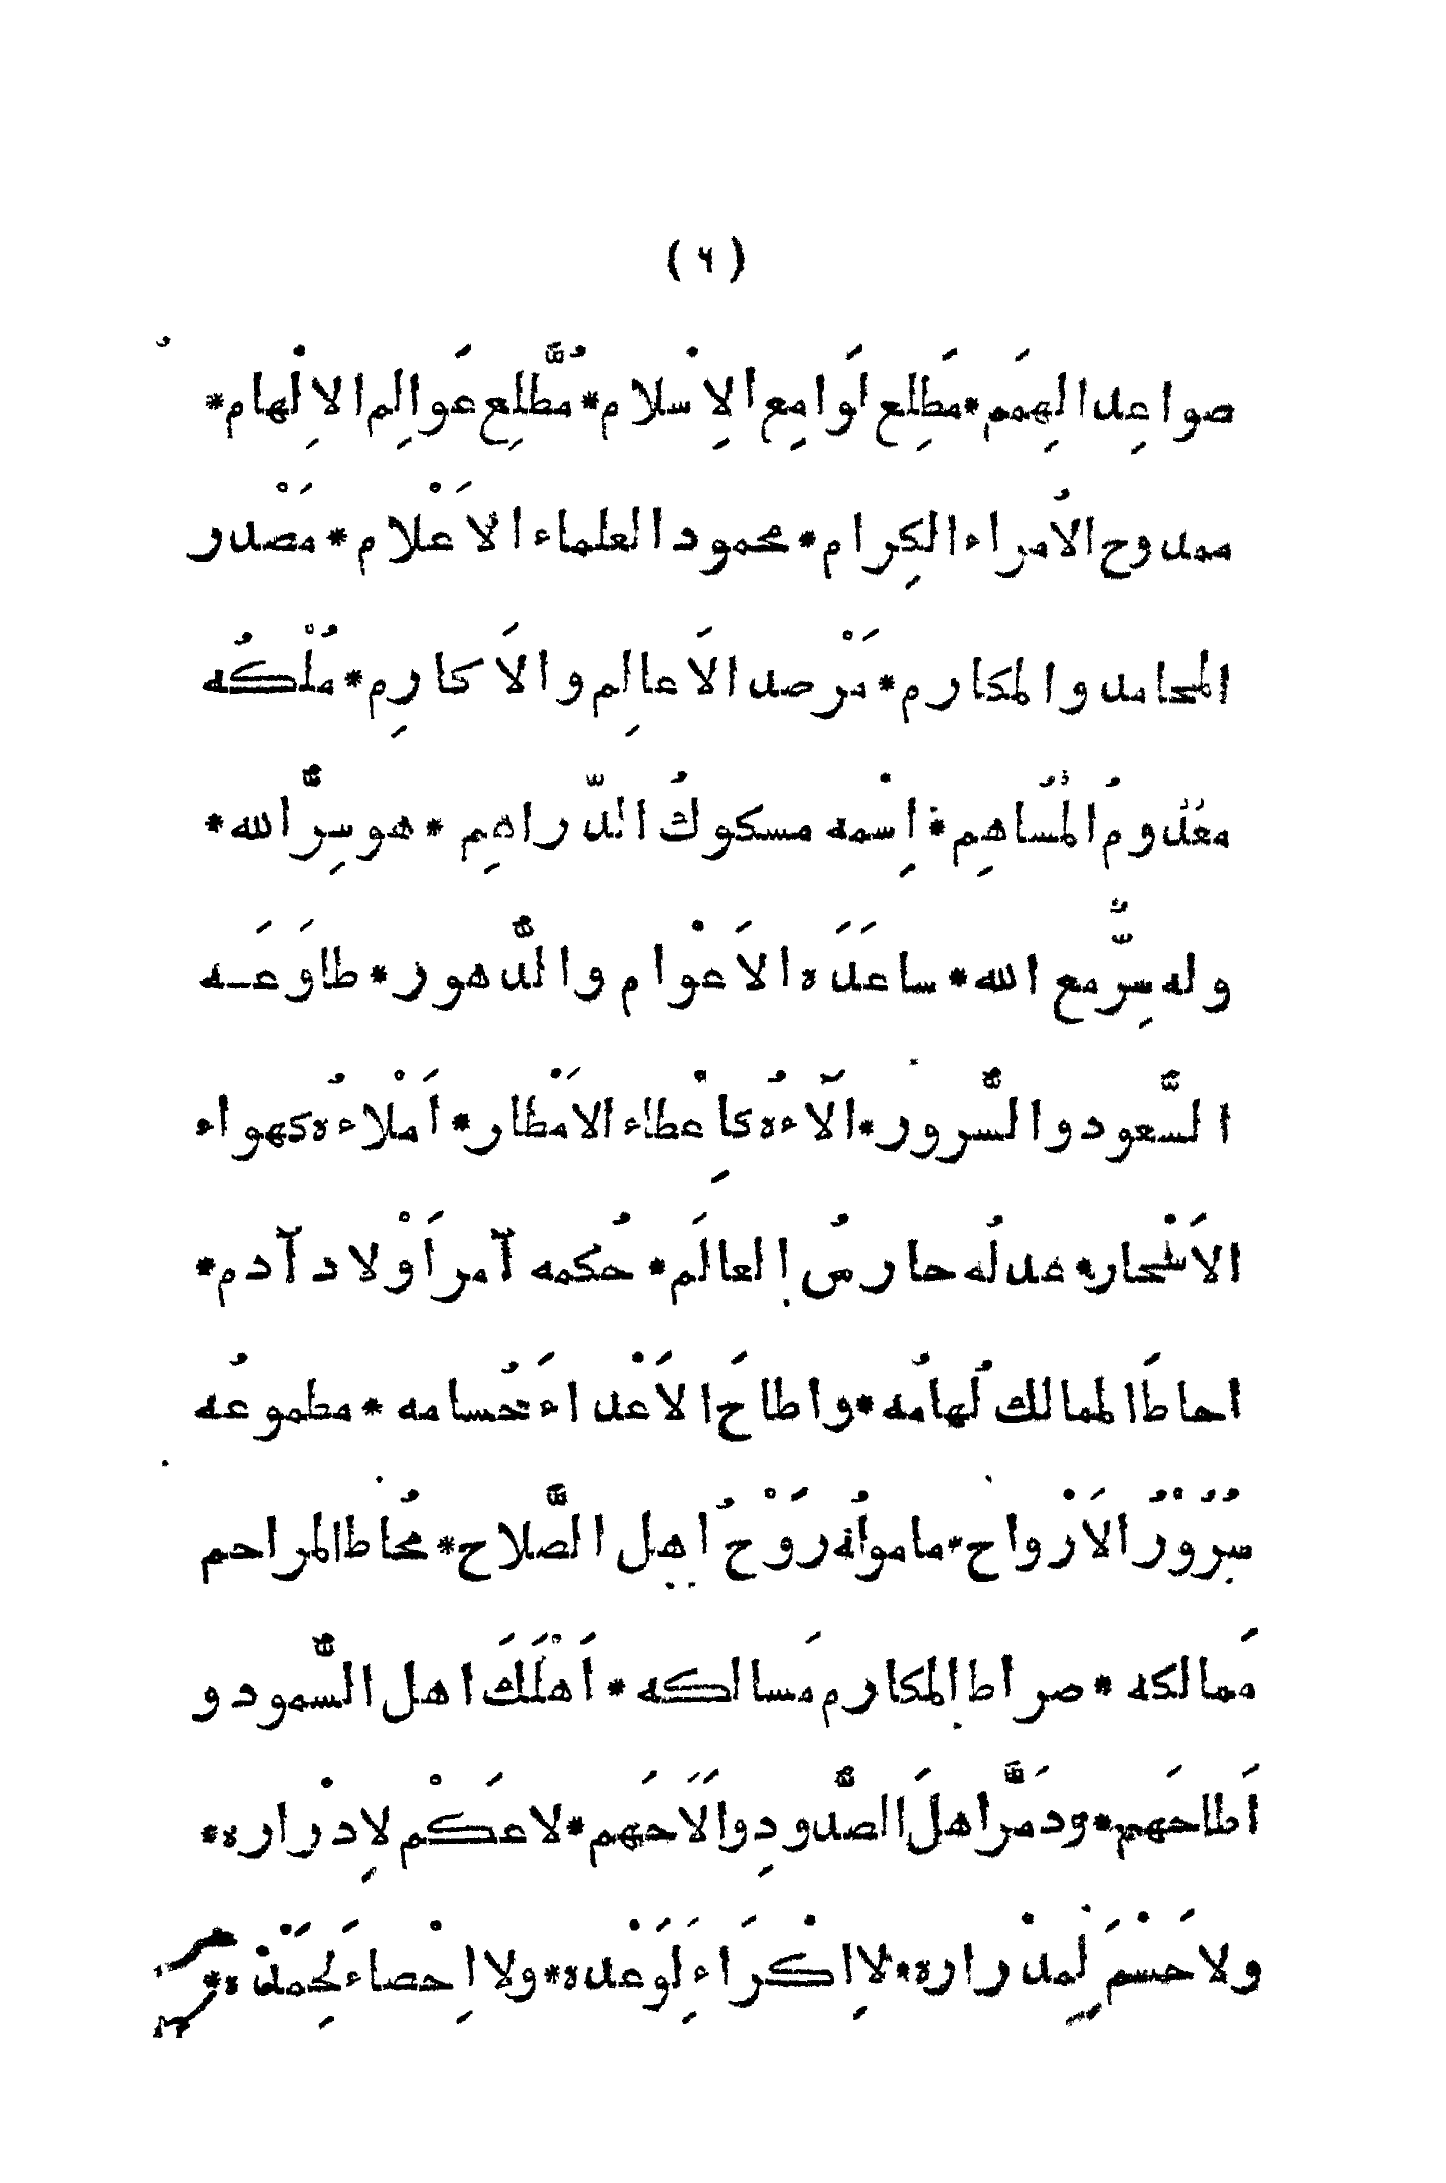 ( ٦ )
صواعِد الهِمم * مَطلِع لَوامِع الاِسْلام * مُطَّلِع عَوالِم الاِلْهام *
ممدوح الاُمراء الكِرام * محمود العلماء الاَعْلام * مَصْدر
المحامد والمكارم * مَرْصد الاَعالِم والاَكارِم * مُلْكُه
معْدومُ المُساهِم * اِسْمه مسكوكُ الدّراهِم * هو سِرُّ الله *
وله سِرٌّ مع الله * ساعَدَه الاَعْوام والدُّهور * طاوَعَه
السُّعود والسُّرور * اَلآءُه كاِعْطاء الامْطار * اَمْلاءُه كهواء
الاَسْحار * عدله حارسُ العالَم * حُكمه آمر اَوْلاد آدم *
احاطَ الممالك لُهامُه * واطاحَ الاَعْداءَ حُسامه * مطموعُه
سُرُوْرُ الاَرْواح * مامولُه رَوْحُ اهل الصَّلاح * مُحاط المراحم
مَمالكه * صراط المكارم مَسالكه * اَهْلَكَ اهل السُّمود و
اَطاحَهم * ودَمَّر اهلَ الصُّدودِ واَلاَحَهم * لا عَكْم لاِدْراره *
ولا حَسْمَ لِمدْراره * لا اِكْراءَ لِوَعْده * ولا اِحْصاء لِحَمْده *